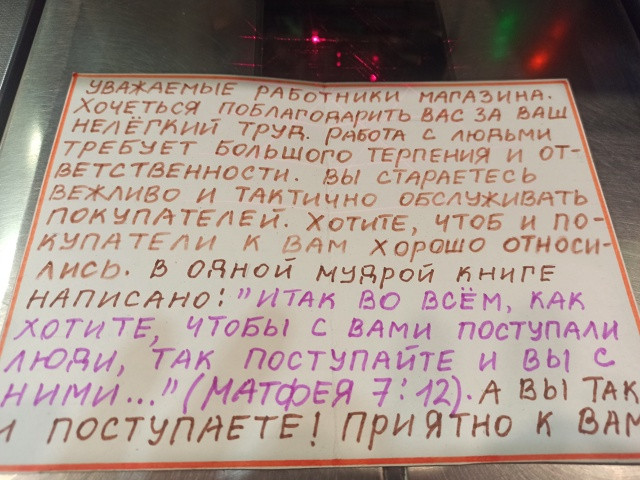 УВАЖАЕМЫЕ РАБОТНИКИ МАГАЗИНА.
ХОЧЕТЬСЯ ПОБЛАГОДАРИТЬ ВАС ЗА ВАШ
НЕЛЁГКИЙ ТРУД. РАБОТА С ЛЮДЬМИ
ТРЕБУЕТ БОЛЬШОГО ТЕРПЕНИЯ И ОТ-
ВЕТСТВЕННОСТИ. ВЫ СТАРАЕТЕСЬ
ВЕЖЛИВО И ТАКТИЧНО ОБСЛУЖИВАТЬ
ПОКУПАТЕЛЕЙ. ХОТИТЕ, ЧТОБ И ПО-
КУПАТЕЛИ К ВАМ ХОРОШО ОТНОСИ-
ЛИСЬ. В ОДНОЙ МУДРОЙ КНИГЕ
НАПИСАНО: "ИТАК ВО ВСЁМ, КАК
ХОТИТЕ, ЧТОБЫ С ВАМИ ПОСТУПАЛИ
ЛЮДИ, ТАК ПОСТУПАЙТЕ И ВЫ С
НИМИ..." (МАТФЕЯ 7:12). А ВЫ ТАК
И ПОСТУПАЕТЕ! ПРИЯТНО К ВАМ